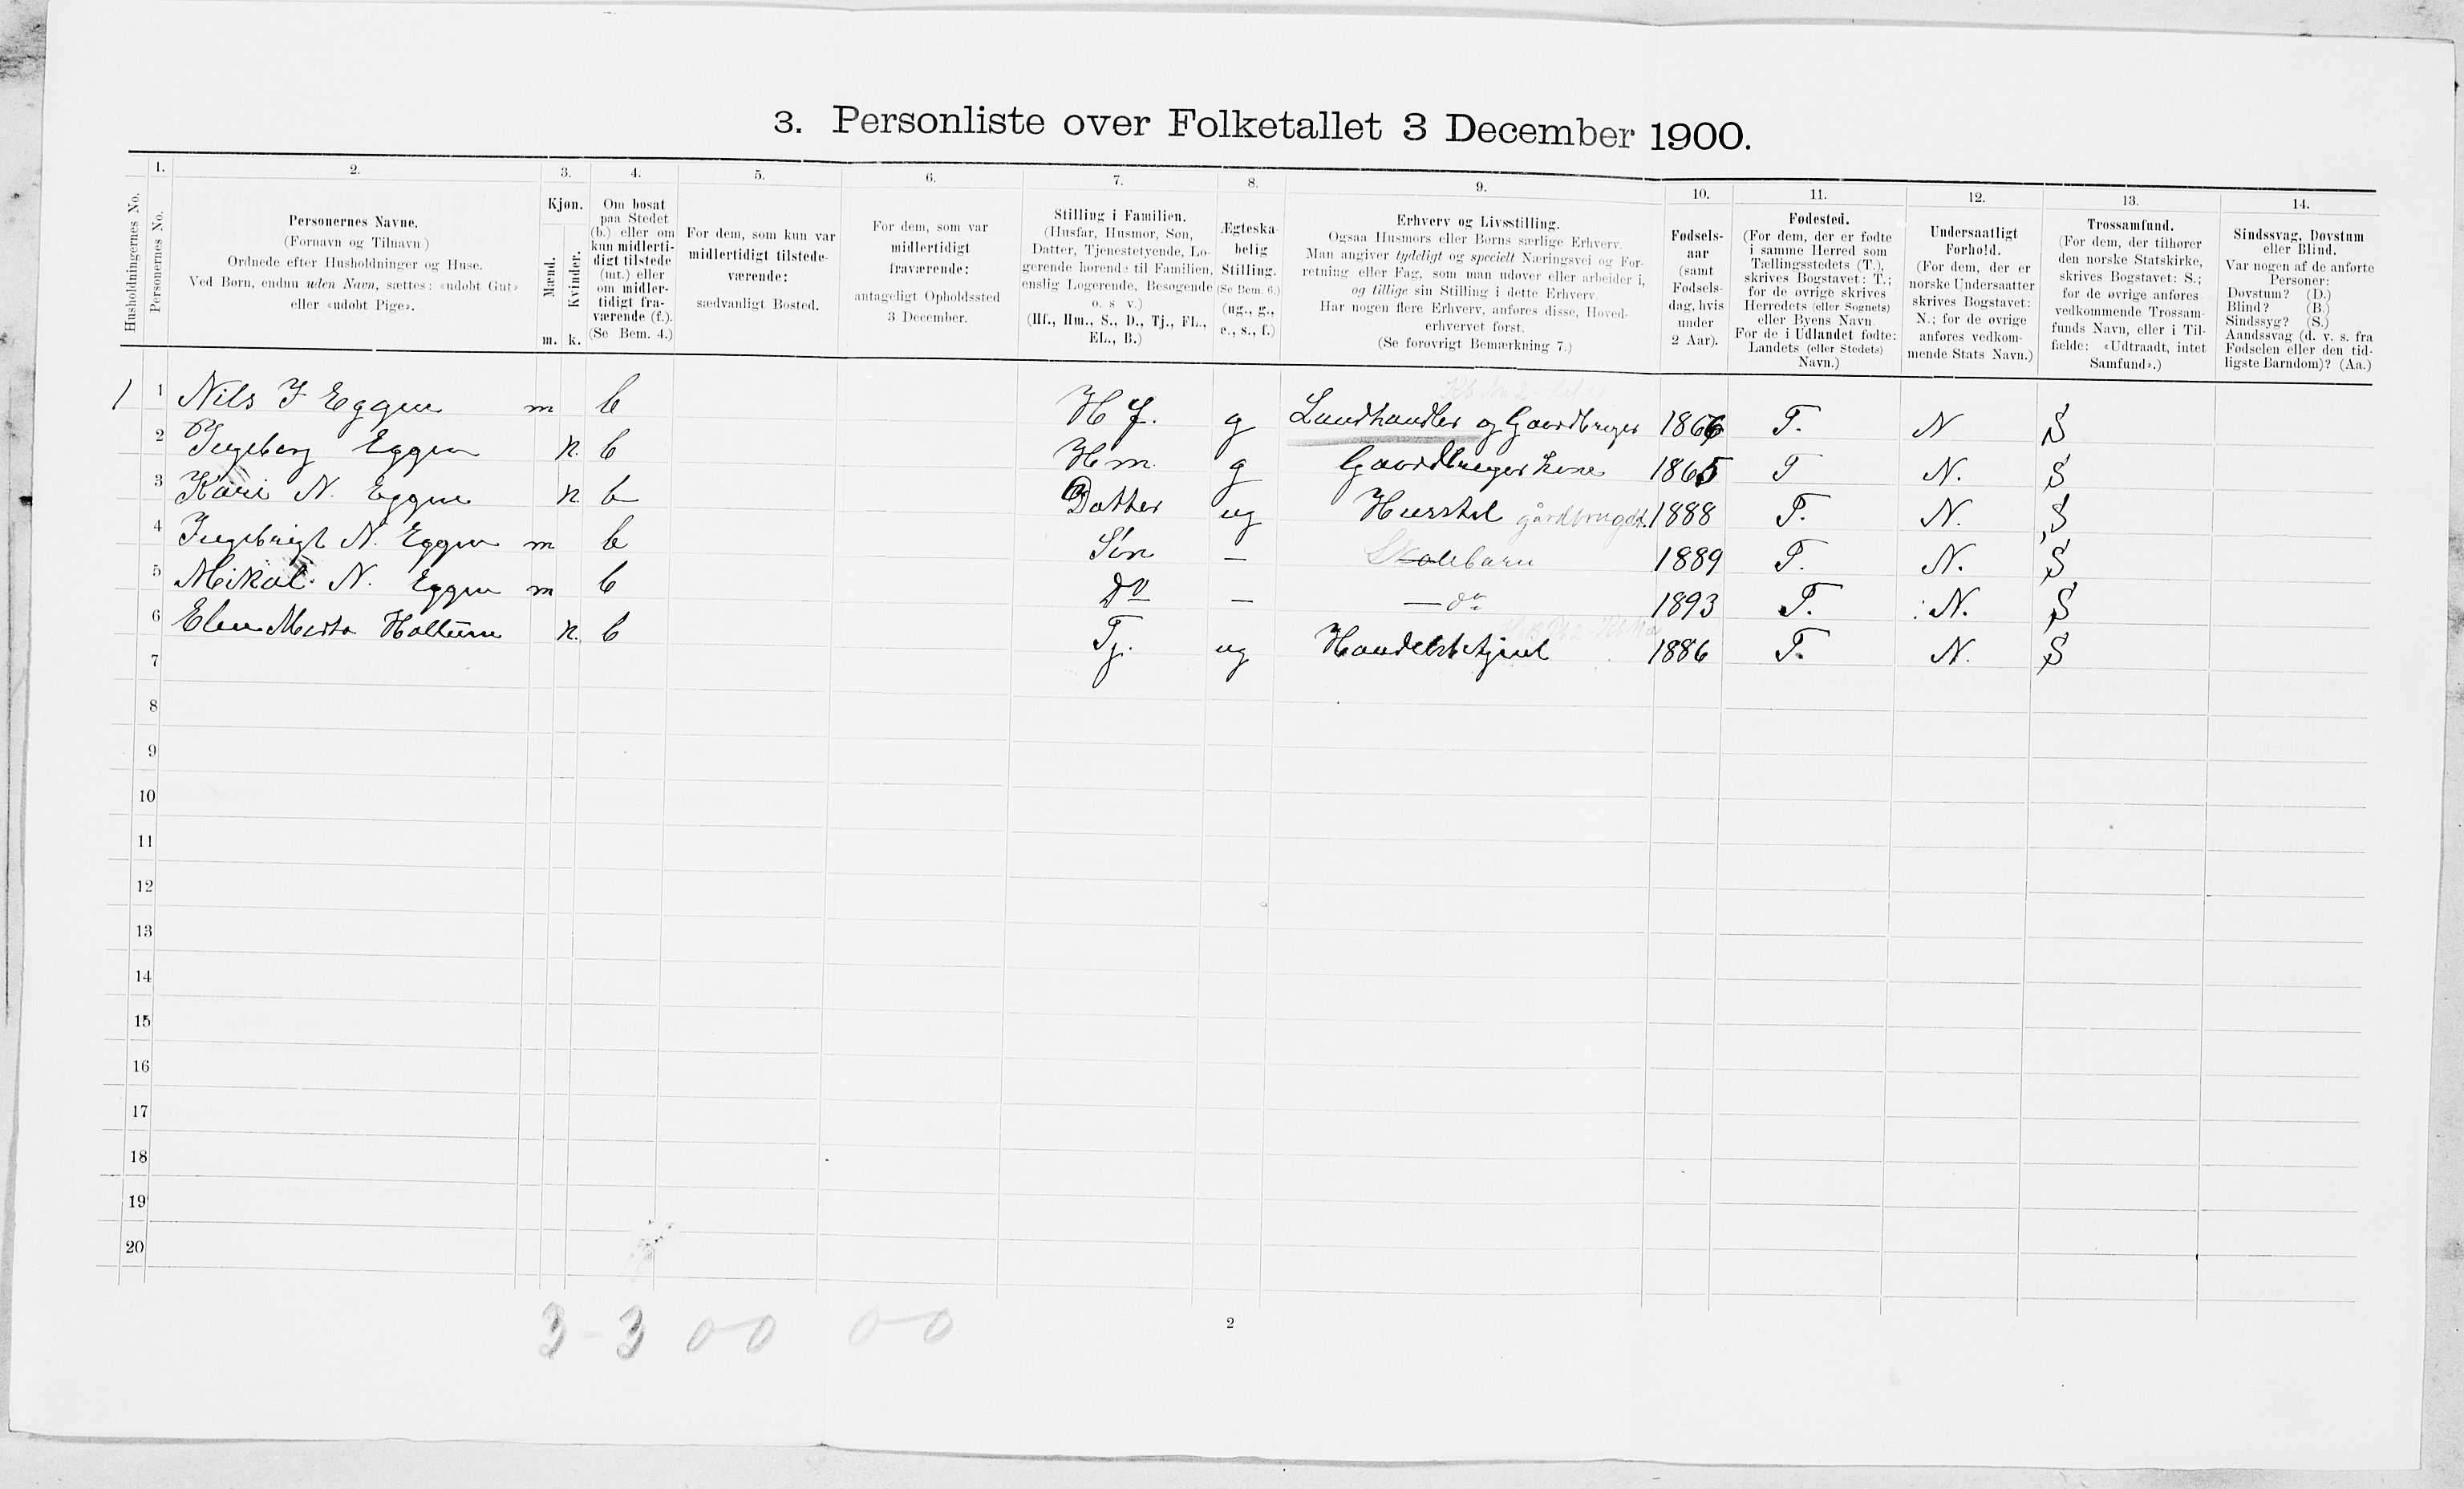 3. Personliste over Folketallet 3 December 1900.
1. 2. 3. 4. 5. 6. 7. 8. 9. 10. 11. 12. 13. 14.
Husholdningernes No.
Personernes No.
Personernes Navne.
(Fornavn og Tilnavn)
Ordnede efter Husholdninger og Huse.
Ved Børn, endnu uden Navn, sættes: «udøbt Gut»
eller «udøbt Pige».
Kjøn.
Mænd.
Kvinder.
m. k.
Om bosat
paa Stedet
(b.) eller om
kun midlerti-
digt tilstede
(mt.) eller
om midler-
tidigt fra-
værende (f.).
(Se Bem. 4.)
For dem, som kun var
midlertidigt tilstede-
værende:
sædvanligt Bosted.
For dem, som var
midlertidigt
fraværende:
antageligt Opholdssted
3 December.
Stilling i Familien.
(Husfar, Husmor, Søn,
Datter, Tjenestetyende, Lo-
gerende hørende til Familien,
enslig Logerende, Besøgende
o. s v.)
(Hf., Hm., S., D., Tj., FL.,
EL., B.)
Ægteska-
belig
Stilling.
(Se Bem. 6.)
(ug., g.,
e., s., f.)
Erhverv og Livsstilling.
Ogsaa Husmors eller Børns særlige Erhverv.
Man angiver tydeligt og specielt Næringsvei og For-
retning eller Fag, som man udøver eller arbeider i,
og tillige sin Stilling i dette Erhverv.
Har nogen flere Erhverv, anføres disse, Hoved-
erhvervet først.
(Se forøvrigt Bemærkning 7.)
Fødsels-
aar
(samt
Fødsels-
dag, hvis
under
2 Aar).
Fødested.
(For dem, der er fødte
i samme Herred som
Tællingsstedets (T.),
skrives Bogstavet: T.;
for de øvrige skrives
Herredets (eller Sognets)
eller Byens Navn.
For de i Udlandet fødte:
Landets (eller Stedets)
Navn.)
Undersaatligt
Forhold.
(For dem, der er
norske Undersaatter
skrives Bogstavet:
N.; for de øvrige
anføres vedkom-
mende Stats Navn.)
Trossamfund.
(For dem, der tilhører
den norske Statskirke,
skrives Bogstavet: S.;
for de øvrige anføres
vedkommende Trossam-
funds Navn, eller i Til-
fælde: «Udtraadt, intet
Samfund».)
Sindssvag, Døvstum
eller Blind.
Var nogen af de anførte
Personer:
Døvstum? (D.)
Blind? (B.)
Sindssyg? (S.)
Aandssvag (d. v. s. fra
Fødselen eller den tid-
ligste Barndom)? (Aa.)
1 1 Nils J Eggen m b Hf. g Landhandler og Gaardbruger 1866 T. N S
2 Ingeborg Eggen k. b Hm. g Gaardbrugerkone 1865 T N. S
3 Kari N. Eggen k b Datter ug Husstel gårdbrugdt. 1888 T. N. S
4 Ingebrigt N. Eggen m b Søn — Skolebarn 1889 T. N. S
5 Mikal N. Eggen m b Do — — do 1893 T. N. S
6 Elen Marta Holtum k. b Tj. ug Handelsbetjent 1886 T. N. S
7
8
9
10
11
12
13
14
15
16
17
18
19
20
3 - 3 0-0 0-0
2